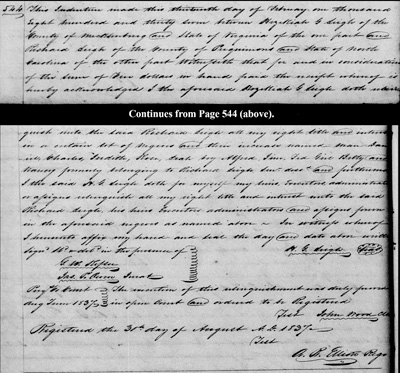 544 This Indenture made this thirteenth day of February one thousand
eight hundred and thirty seven between Hezekiah G Leigh of the
County of Mecklenburg and State of Virginia of the one part and
Richard Leigh of the County of Perquimons and State of North
Carolina of the other part Witnesseth that for and in consideration
of the sum of five dollars in hand paid the receipt whereof is
hereby acknowledged I the aforesaid Hezekiah G Leigh doth
Continues from Page 544 (above).
quish unto the said Richard Leigh all my right title and interest
in a certain lot of negroes and their increase named man Dan
Charles, Judith, Rose, Leah by Alfred Jim, Ned Gil Betty and
Nancy formerly belonging to Richard Leigh Senr decd and furthermore
I the said H. G Leigh doth for myself my heirs, Executors administrators
or assigns relinquish all my right title and interest unto the said
Richard Leigh, his heirs Executors administrators and assigns forever
in the aforesaid negroes as named above. In testimony whereof
I hereunto affix my hand and seal the day and date above written
in the presence of
H. G. Leigh Seal
Jurat
Court The execution of this relinquishment was duly proven
June 1837 in open Court and ordered to be Registered
Test John Wood Clk
Registered the 31st day of August A.D. 1837.
Test